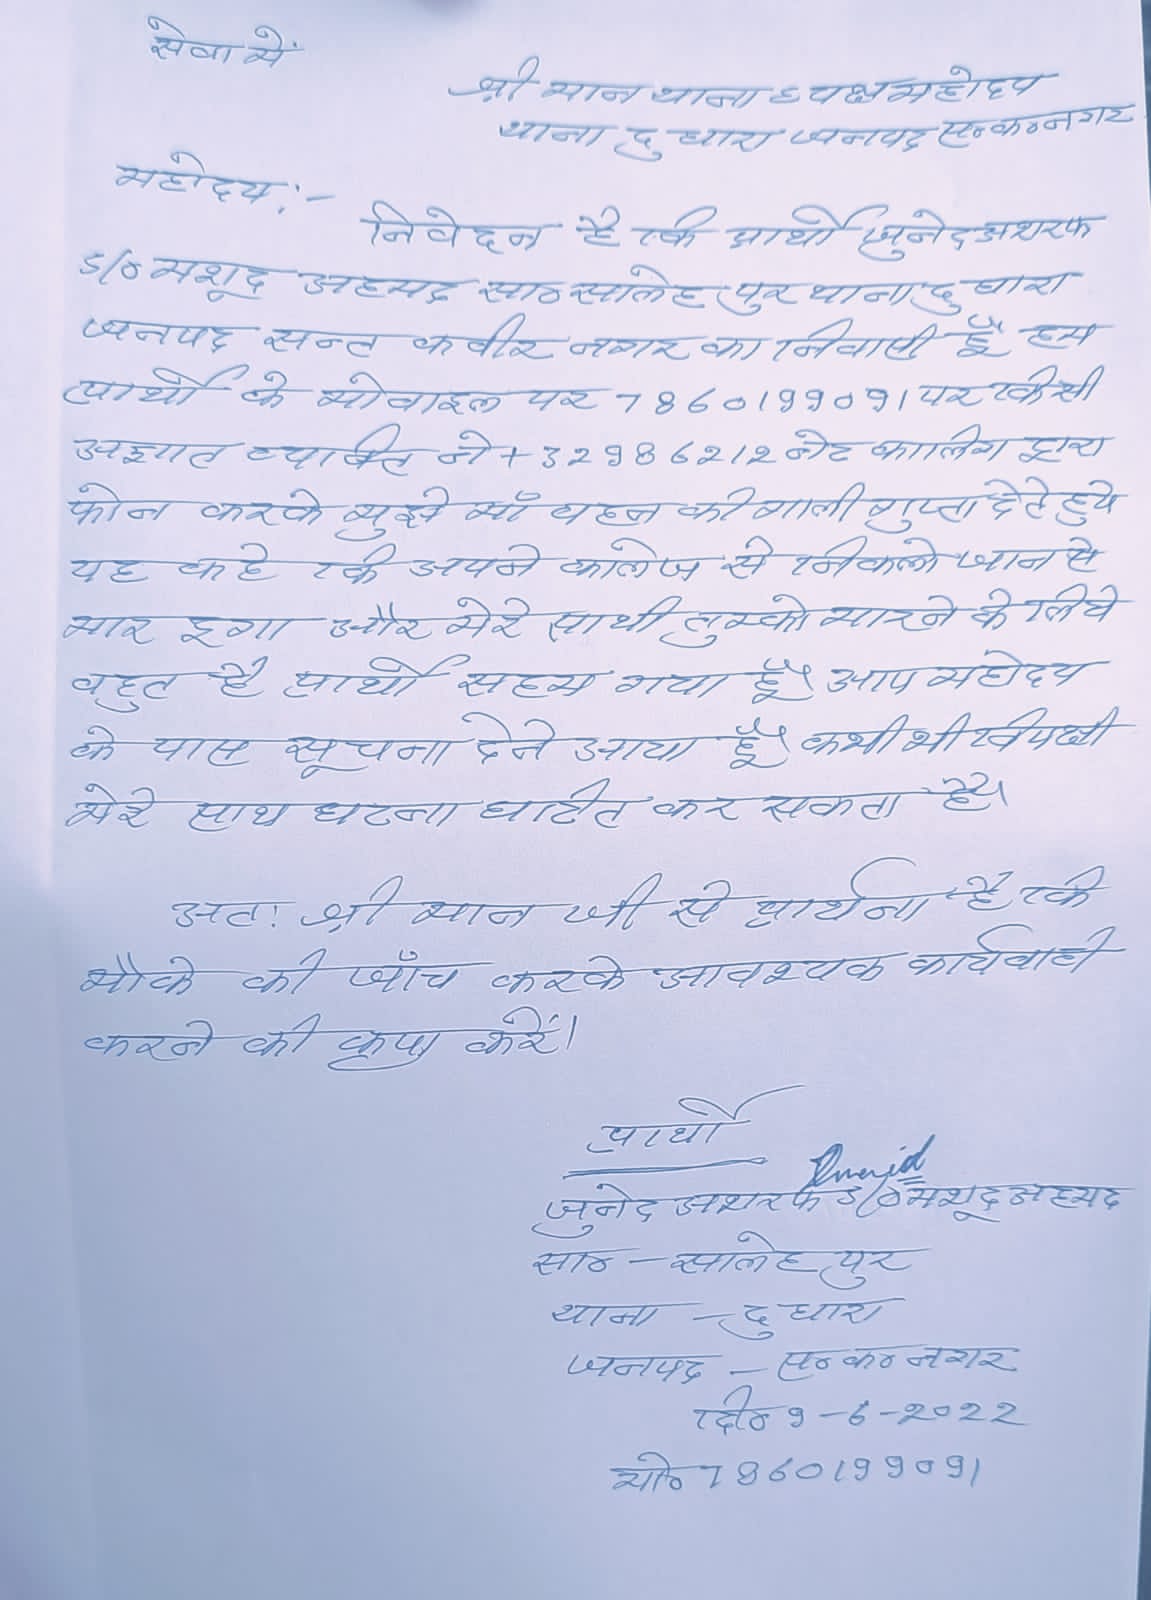 सेवा में
श्री मान थाना ध्यक्ष महोदय
थाना दुधारा जनपद स०क०नगर
महोदय:-
निवेदन है कि प्रार्थी जुनेद अशरफ
S/O मशूद अहमद सा० सालेहपुर थाना दुधारा
जनपद सन्त कबीर नगर का निवासी हूँ हम
प्रार्थी के मोबाइल पर 7860199091 पर किसी
अज्ञात व्यक्ति ने +32986212 नेट कालिंग द्वारा
फोन करके मुझे माँ बहन की गाली गुप्ता देते हुये
यह कहे कि अपने कालेज से निकलो जान से
मार दूगा और मेरे साथी तुमको मारने के लिये
बहुत है प्रार्थी सहम गया हूँ। आप महोदय
के पास सूचना देने आया हूँ। कभी भी विपक्षी
मेरे साथ घटना घटित कर सकता है।
अत: श्री मान जी से प्रार्थना है कि
मौके की जाँच करके आवश्यक कार्यवाही
करने की कृपा करें।
प्रार्थी
Junaid
जुनेद अशरफ S/O मशूद अहमद
सा० - सालेहपुर
थाना - दुधारा
जनपद - स०क०नगर
दि० 9-6-2022
मो० 7860199091